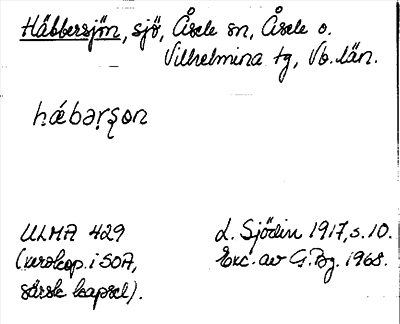 Häbbersjön, sjö, Åsele sn, Åsele o.
Vilhelmina tg, Vb. län.
hǽbəṛʂon
ULMA 429
(xerokop. i SOA,
särsk kapsel).
L. Sjödin 1917, s. 10.
Exc. av G. Bg. 1968.